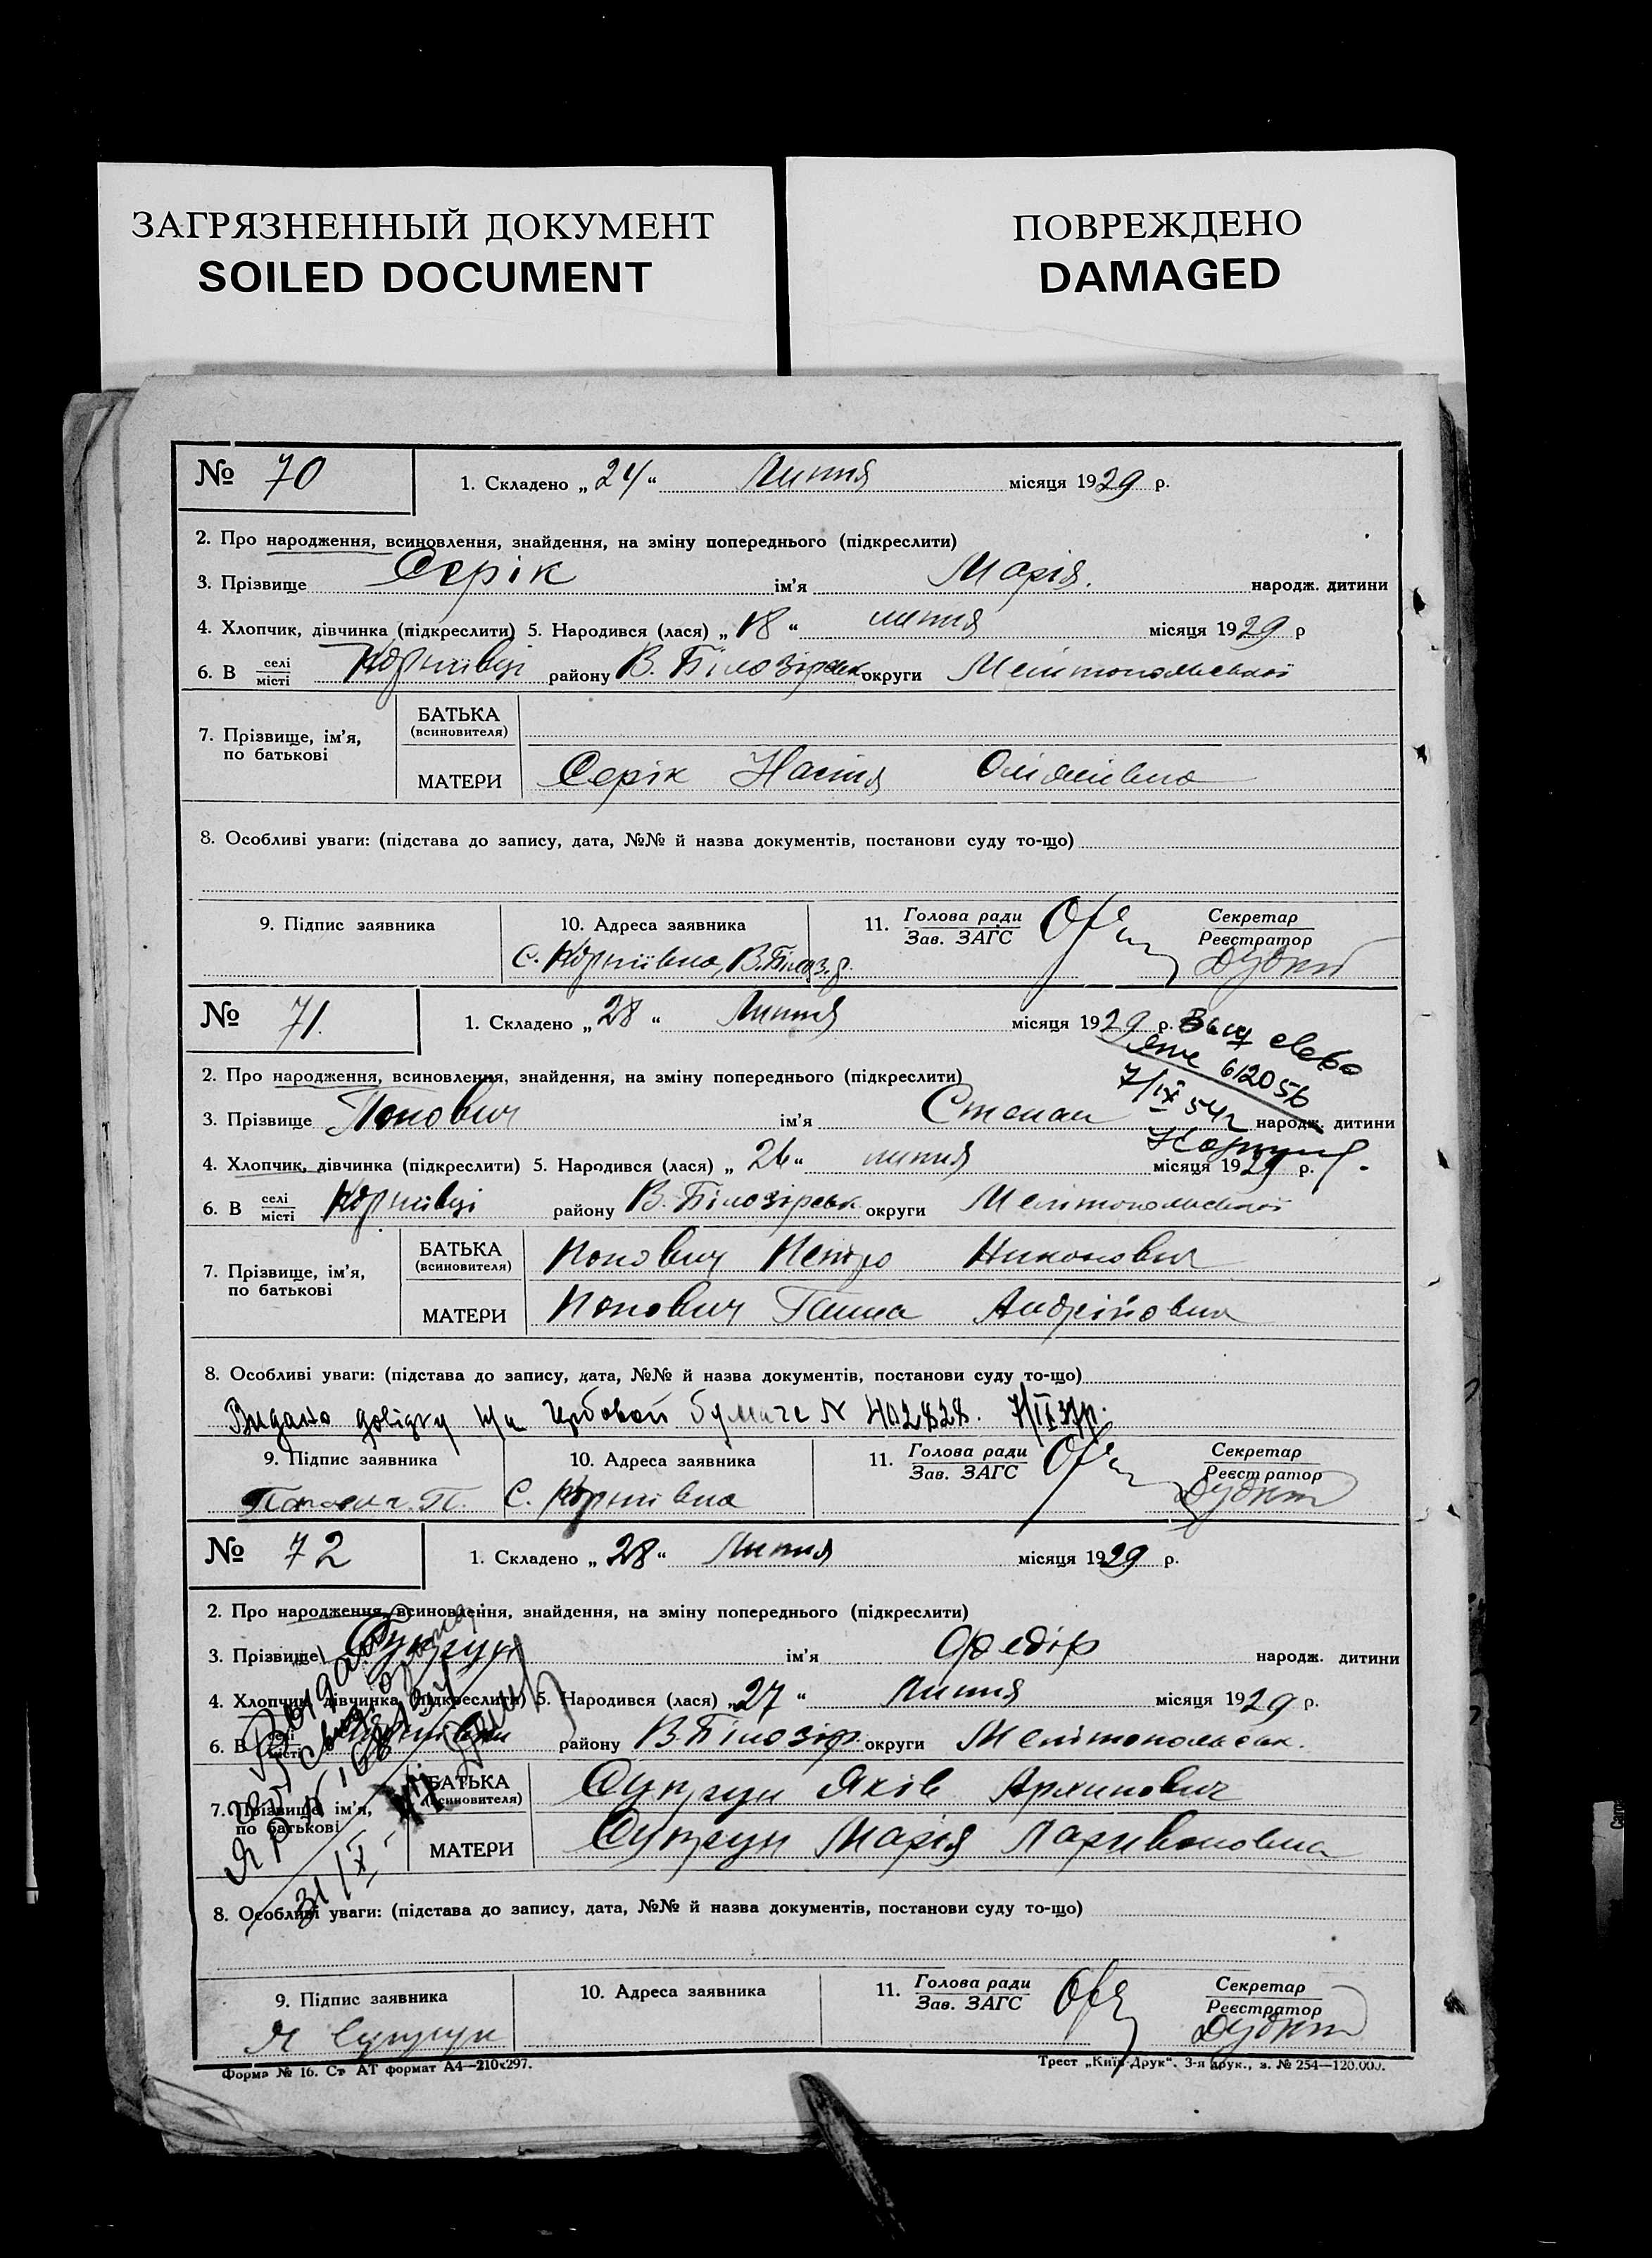 ЗАГРЯЗНЕННЫЙ ДОКУМЕНТ
SOILED DOCUMENT
ПОВРЕЖДЕНО
DAMAGED
№ 70
1. Складено „24“ Липня місяця 1929 р.
2. Про народження, всиновлення, знайдення, на зміну попереднього (підкреслити)
3. Прізвище Серік ім'я Марія. народж. дитини
4. Хлопчик, дівчинка (підкреслити) 5. Народився (лася) „18“ липня місяця 1929 р
6. В селі місті Корніївці району В. Білозірськ округи Мелітопольської
7. Прізвище, ім'я, по батькові
БАТЬКА (всиновителя)
МАТЕРИ Серік Настя
8. Особливі уваги: (підстава до запису, дата, №№ й назва документів, постанови суду то-що)
9. Підпис заявника
10. Адреса заявника
11. Голова ради Зав. ЗАГС
Секретар Реєстратор
с. Корніївка, В. Білоз. р.
№ 71.
1. Складено „28“ Липня місяця 1929 р.
612056
7/IX 54 г
2. Про народження, всиновлення, знайдення, на зміну попереднього (підкреслити)
3. Прізвище Попович ім'я Степан народж. дитини
4. Хлопчик, дівчинка (підкреслити) 5. Народився (лася) „26“ липня місяця 1929 р.
6. В селі місті Корніївці району В. Білозірськ округи Мелітопольської
7. Прізвище, ім'я, по батькові
БАТЬКА (всиновителя) Попович Петро Никонович
МАТЕРИ Попович Ганна Андрійовна
8. Особливі уваги: (підстава до запису, дата, №№ й назва документів, постанови суду то-що)
Видано довідку на гербовой бумаге N 402828. 7/IX 37р.
9. Підпис заявника
10. Адреса заявника
11. Голова ради Зав. ЗАГС
Секретар Реєстратор
с. Корніївка
№ 72
1. Складено „28“ Липня місяця 1929 р.
2. Про народження, всиновлення, знайдення, на зміну попереднього (підкреслити)
3. Прізвище Супрун ім'я Федір народж. дитини
4. Хлопчик, дівчинка (підкреслити) 5. Народився (лася) „27“ Липня місяця 1929 р.
6. В селі місті Корніївки району В. Білозір. округи Мелітопольськ.
7. Прізвище, ім'я, по батькові
БАТЬКА (всиновителя) Супрун Яків Архипович
МАТЕРИ Супрун Марія Ларивоновна
8. Особливі уваги: (підстава до запису, дата, №№ й назва документів, постанови суду то-що)
9. Підпис заявника
10. Адреса заявника
11. Голова ради Зав. ЗАГС
Секретар Реєстратор
Я Супрун
Форма № 16. Ст АТ формат А4—210х297.
Трест „Київ-Друк“. 3-я друк., з. № 254—120.000.